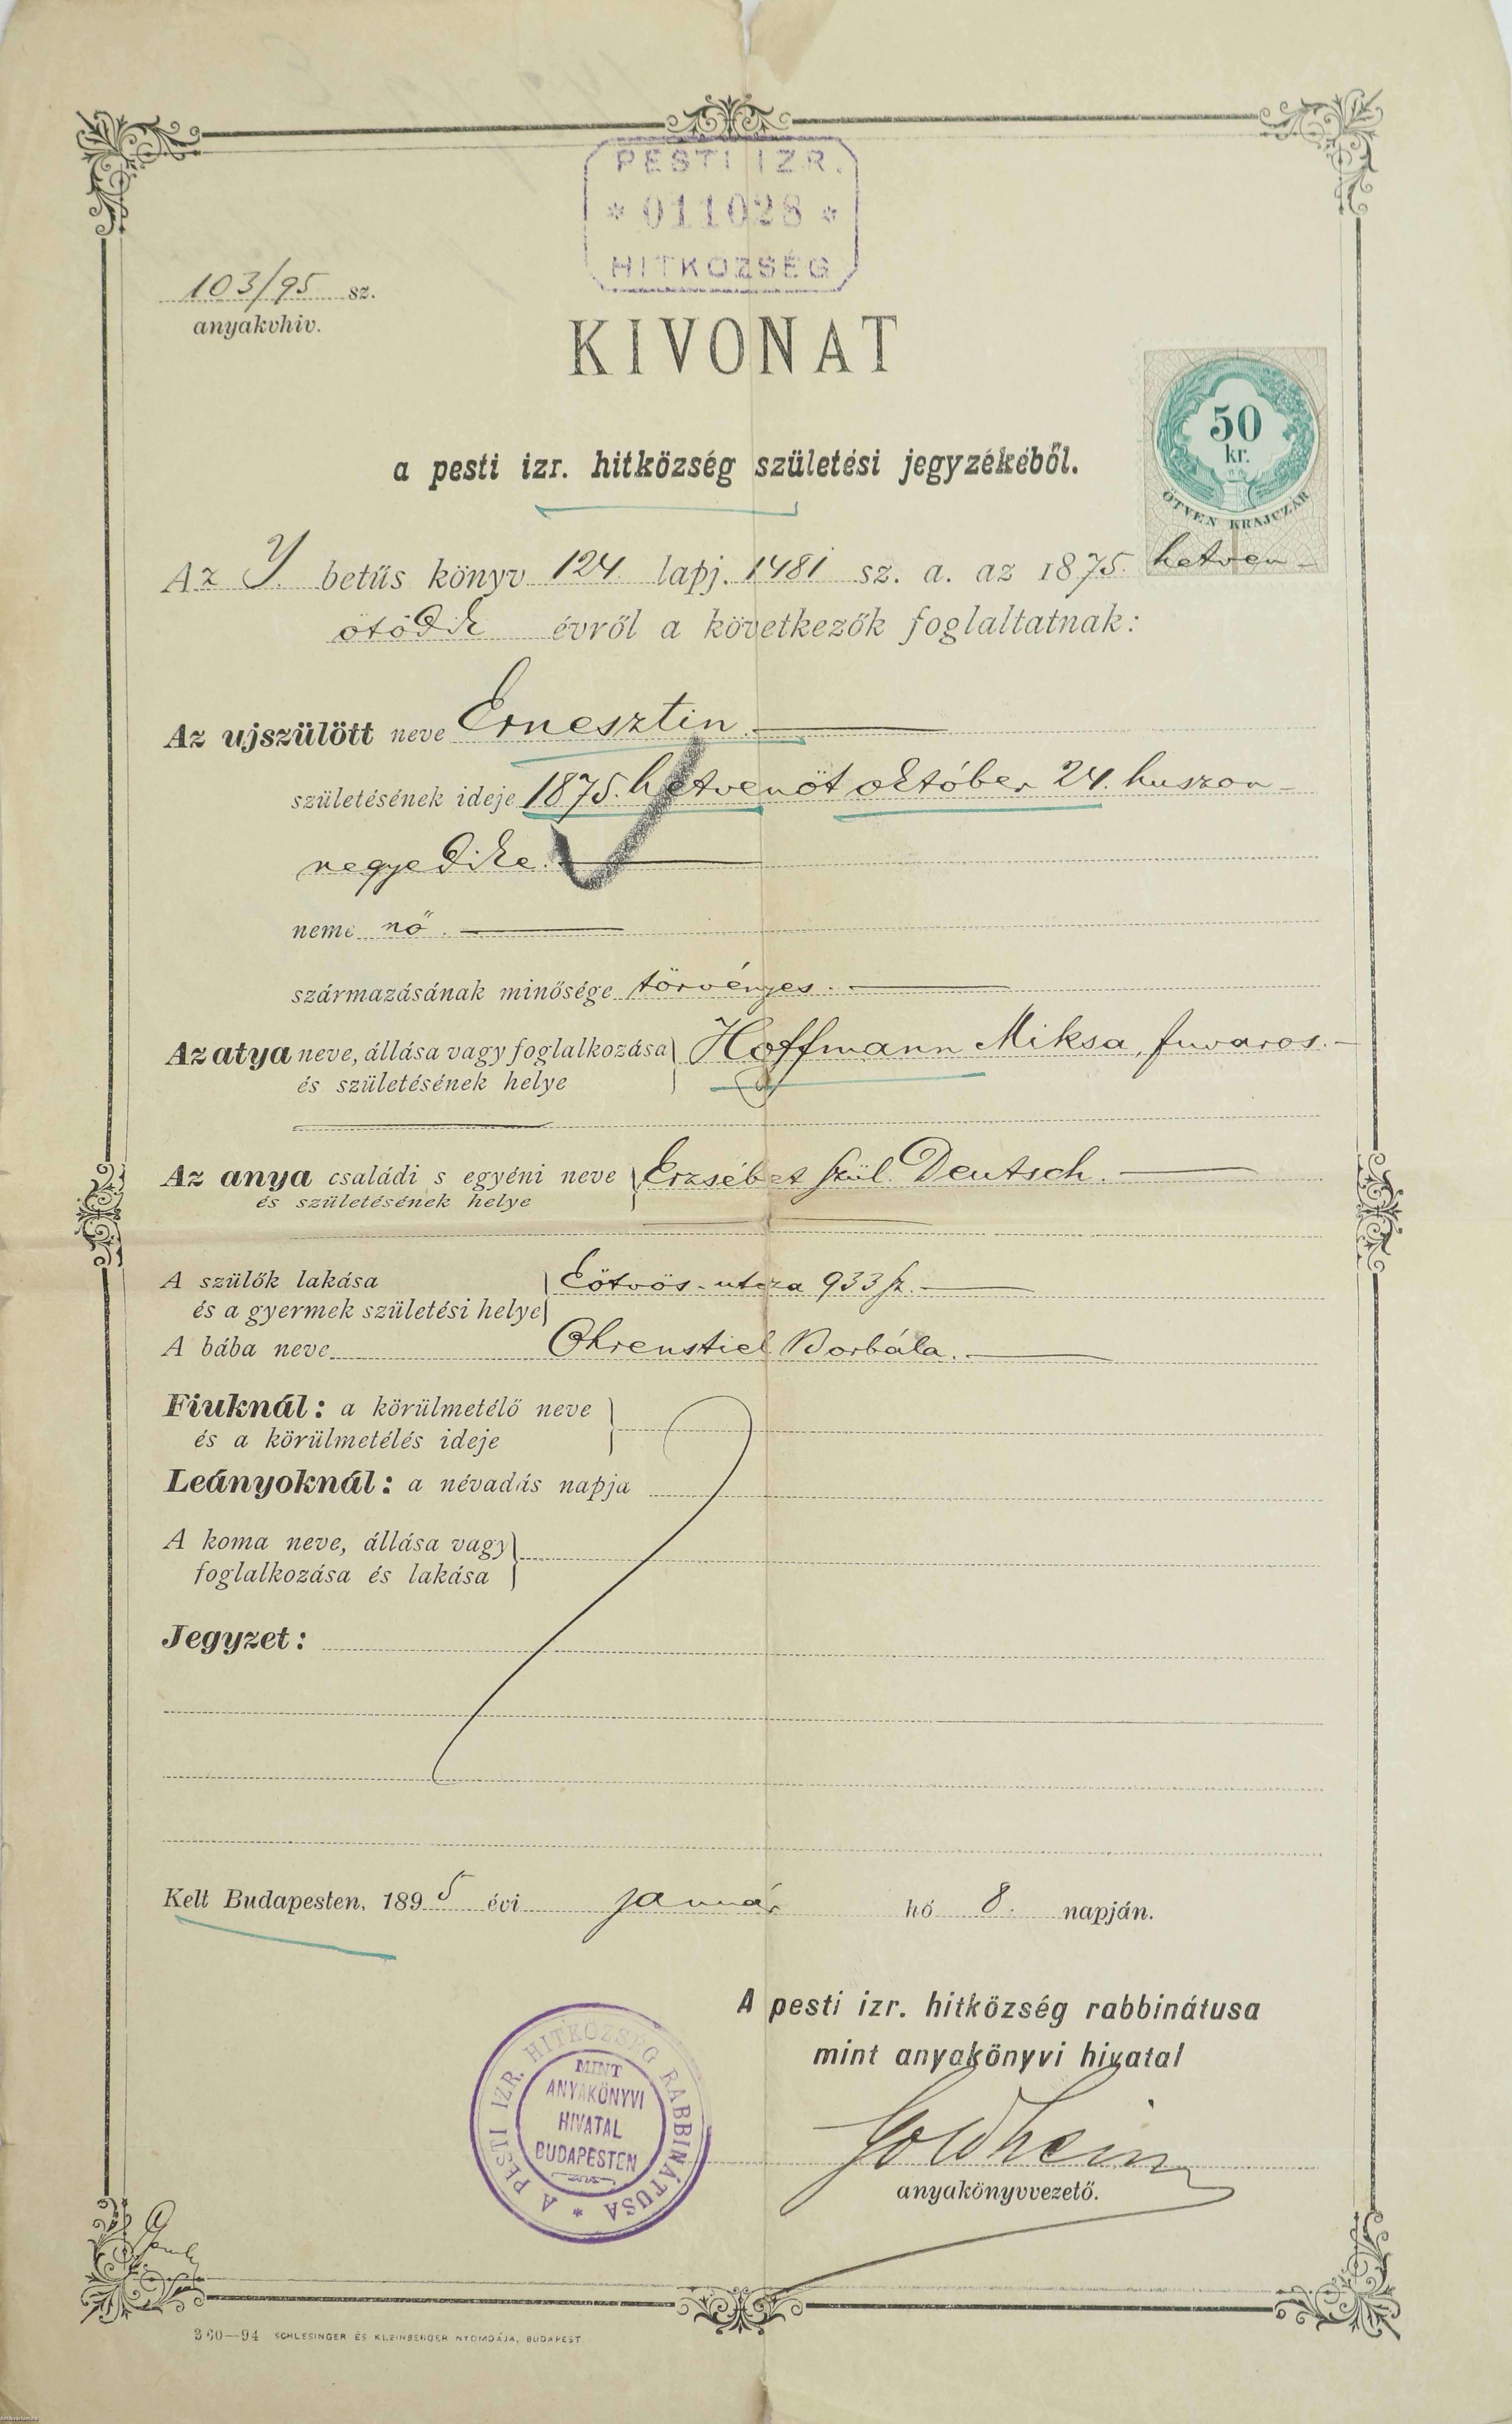 PESTI IZR.
* 011028 *
HITKÖZSÉG
103/95 sz.
anyakvhiv.
KIVONAT
50
kr.
ÖTVEN KRAJCZÁR
a pesti izr. hitközség születési jegyzékéből.
Az Y. betűs könyv 124 lapj. 1481 sz. a. az 1875. hetven-
ötödik évről a következők foglaltatnak:
Az ujszülött neve Ernesztin.
születésének ideje 1875. hetvenöt október 24. huszon-
negyedike.
neme nő.
származásának minősége törvényes.
Az atya neve, állása vagy foglalkozása Hoffmann Miksa, fuvaros.
és születésének helye
Az anya családi s egyéni neve Erzsébet szül. Deutsch.
és születésének helye
A szülők lakása Eötvös-utcza 933 sz.
és a gyermek születési helye
A bába neve Ohrenstiel Borbála.
Fiuknál: a körülmetélő neve
és a körülmetélés ideje
Leányoknál: a névadás napja
A koma neve, állása vagy
foglalkozása és lakása
Jegyzet:
Kelt Budapesten, 1895 évi január hó 8. napján.
A pesti izr. hitközség rabbinátusa
mint anyakönyvi hivatal
A PESTI IZR. HITKÖZSÉG RABBINÁTUSA *
MINT
ANYAKÖNYVI
HIVATAL
BUDAPESTEN
Goldhein
anyakönyvvezető.
360—94 SCHLESINGER ÉS KLEINBERGER NYOMDÁJA, BUDAPEST